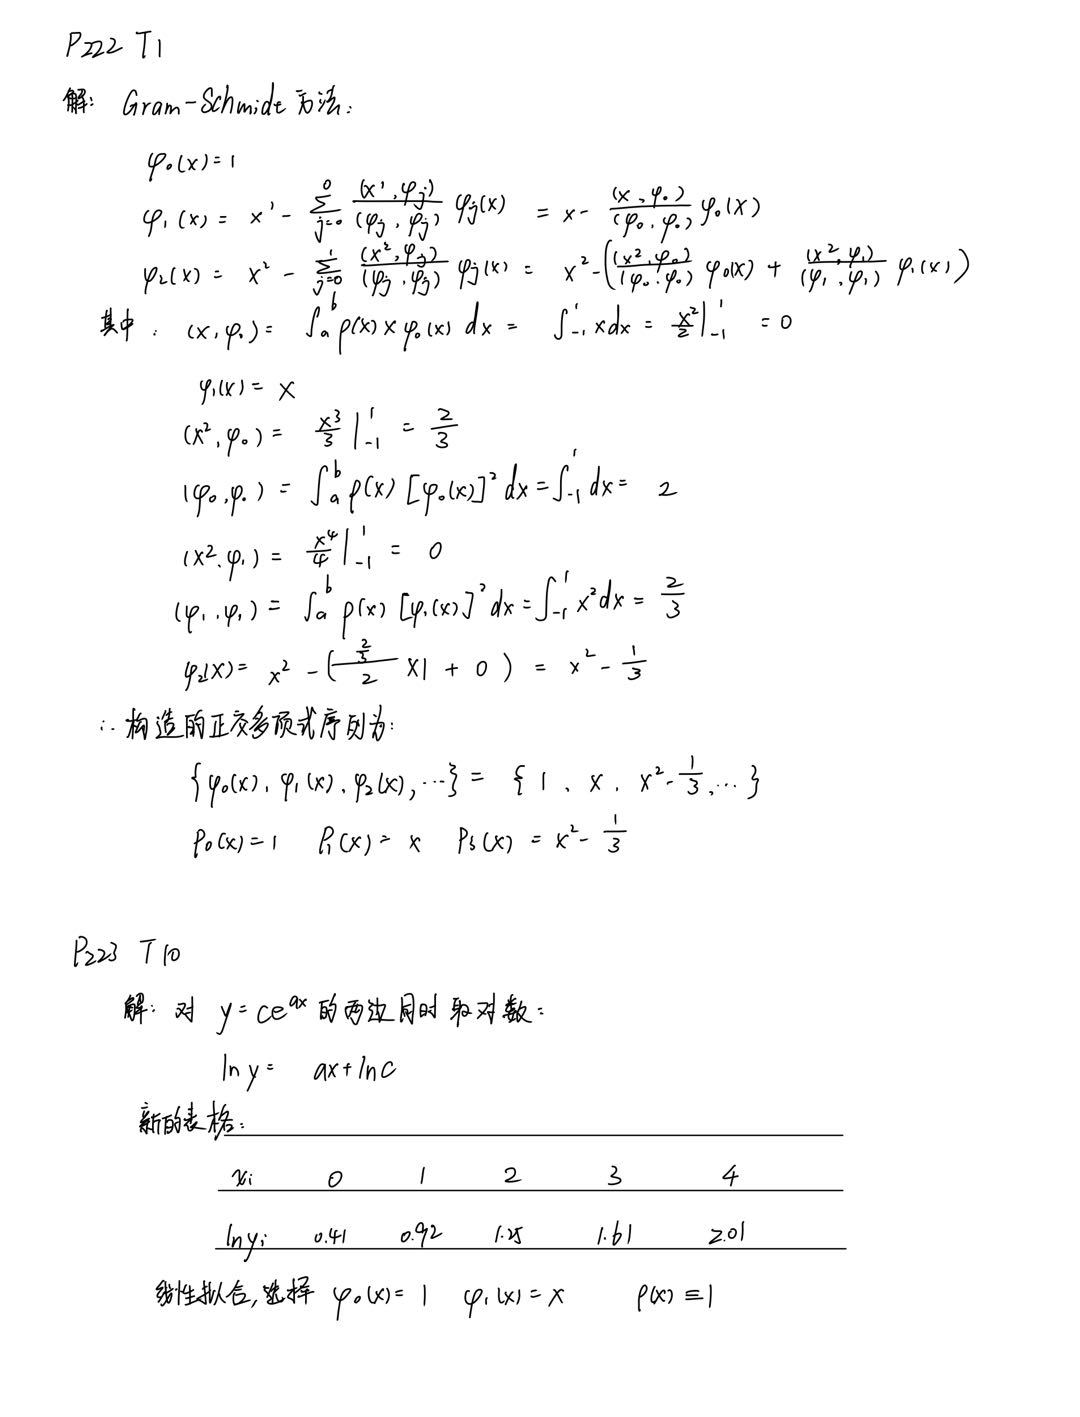 P222 T1
解: Gram-Schmide 方法:
φ₀(x)=1
φ₁(x) = x¹ - ∑_{j=0}^{0} (x¹,φⱼ)/(φⱼ,φⱼ) φⱼ(x) = x - (x,φ₀)/(φ₀,φ₀) φ₀(x)
φ₂(x) = x² - ∑_{j=0}^{1} (x²,φⱼ)/(φⱼ,φⱼ) φⱼ(x) = x² - ((x²,φ₀)/(φ₀,φ₀) φ₀(x) + (x²,φ₁)/(φ₁,φ₁) φ₁(x))
其中: (x,φ₀) = ∫_a^b ρ(x) x φ₀(x) dx = ∫_{-1}^{1} x dx = x²/2 |_{-1}^{1} = 0
φ₁(x) = x
(x²,φ₀) = x³/3 |_{-1}^{1} = 2/3
(φ₀,φ₀) = ∫_a^b ρ(x) [φ₀(x)]² dx = ∫_{-1}^{1} dx = 2
(x²,φ₁) = x⁴/4 |_{-1}^{1} = 0
(φ₁,φ₁) = ∫_a^b ρ(x) [φ₁(x)]² dx = ∫_{-1}^{1} x² dx = 2/3
φ₂(x) = x² - ((2/3)/2 ×1 + 0) = x² - 1/3
∴ 构造的正交多项式序列为:
{φ₀(x), φ₁(x), φ₂(x), …} = {1, x, x² - 1/3, …}
P₀(x)=1 P₁(x)= x P₃(x) = x² - 1/3
P223 T10
解: 对 y=ce^{ax} 的两边同时取对数:
ln y = ax+lnC
新的表格:
xᵢ 0 1 2 3 4
ln yᵢ 0.41 0.92 1.25 1.61 2.01
线性拟合,选择 φ₀(x)= 1 φ₁(x)=x ρ(x) ≡1